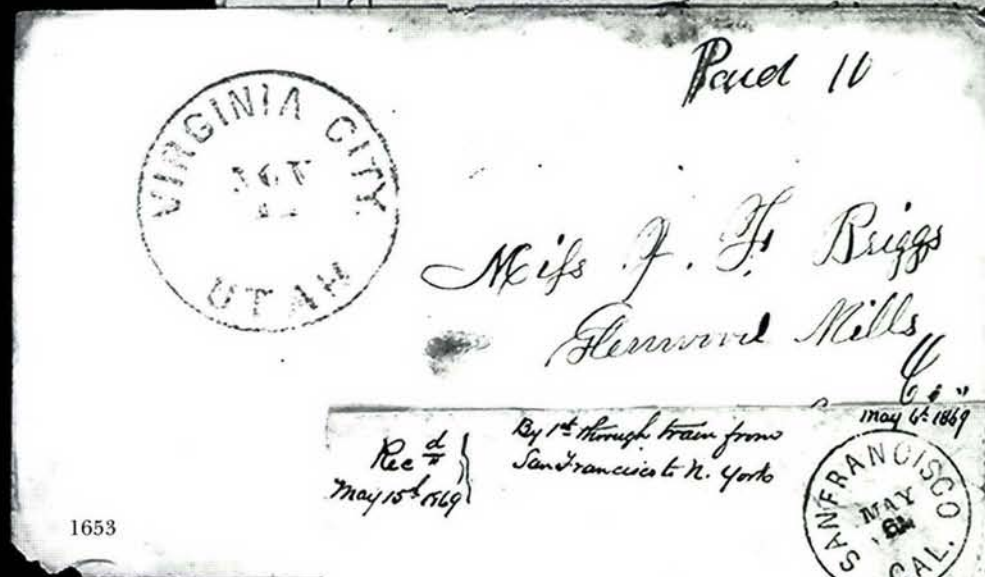 Paid 10
VIRGINIA CITY
UTAH
Miss J. F. Briggs
Glenwood Mills
May 6th 1869
Rec d
May 15th 1869
By 1st through train from
San Francisco to N. York
SAN FRANCISCO
MAY
6
CAL.
1653